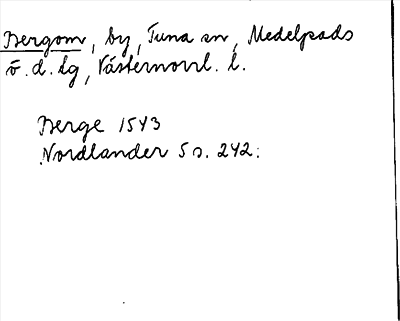 Bergom, by, Tuna sn, Medelpads
ö. d. tg, Västernorrl. l.
Berge 1543
Nordlander 5 s. 242.